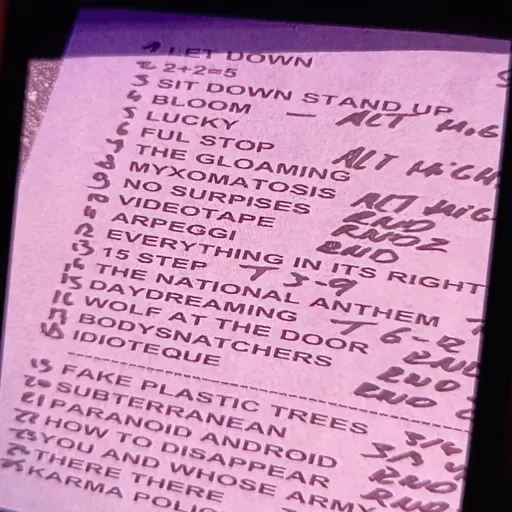 1 LET DOWN
2 2+2=5
3 SIT DOWN STAND UP
4 BLOOM — ALT HIG
5 LUCKY
6 FUL STOP ALT HIGH
7 THE GLOAMING
8 MYXOMATOSIS ALT HIG
9 NO SURPISES RND
10 VIDEOTAPE RND2
11 ARPEGGI RND
12 EVERYTHING IN ITS RIGHT
13 15 STEP T 3-9
14 THE NATIONAL ANTHEM T
15 DAYDREAMING T 6-12
16 WOLF AT THE DOOR RND
17 BODYSNATCHERS RND
18 IDIOTEQUE RND 2
19 FAKE PLASTIC TREES 3/4
20 SUBTERRANEAN
21 PARANOID ANDROID
22 HOW TO DISAPPEAR RND
23 YOU AND WHOSE ARMY RND
24 THERE THERE
25 KARMA POLI